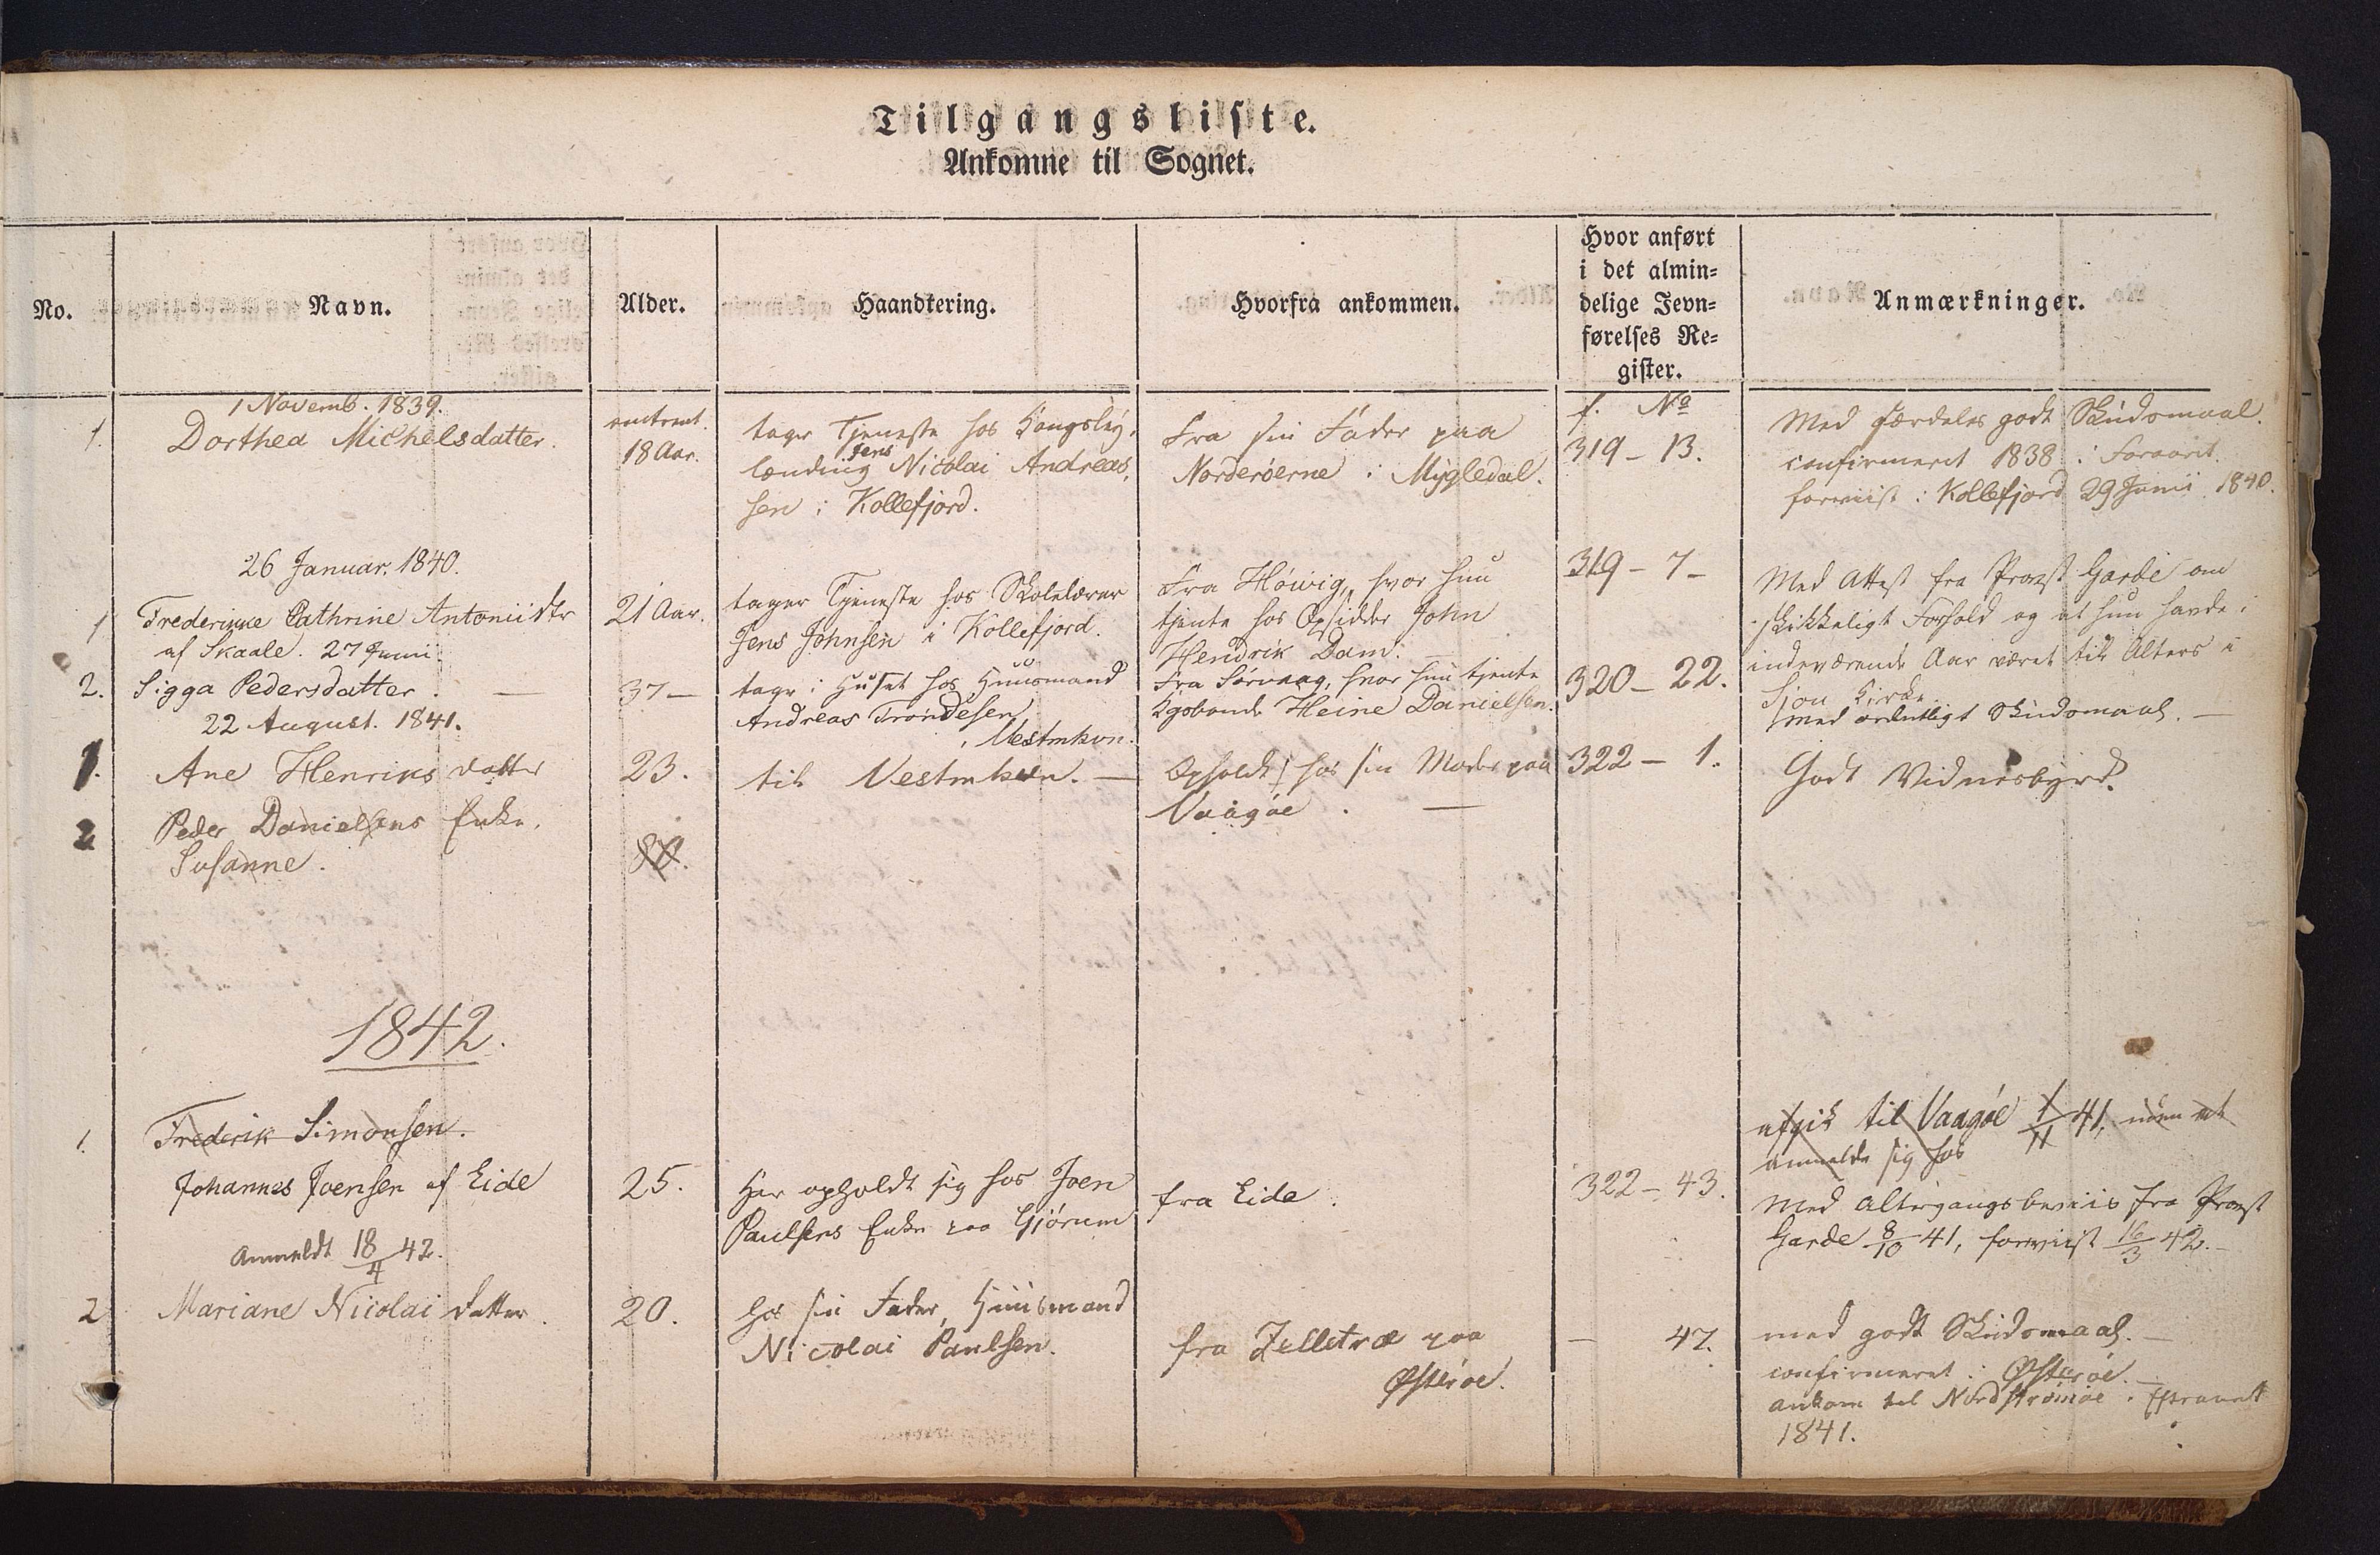 Tilgangsliste.
Ankomne til Sognet.
No.
Navn.
Alder.
Haandtering.
Hvorfra ankommen.
Hvor anført
i det almin-
delige Jevn-
førelses Re-
gister.
Anmærkninger.
1 Novemb. 1839.
1.
Dorthea Michelsdatter.
omtrent.
18 Aar.
tager Tjeneste hos Kongsley,
Jens
lænding Nicolai Andreas,
sen i Kollefjord.
Fra sin Fader paa
Norderöerne i Mygledal.
f. No
319 – 13.
Med særdeles godt Skudsmaal.
confirmeret 1838 i Foraaret.
forevist i Kollefjord 29 Juni 1840.
26 Januar. 1840.
1
Frederikke Cathrine Antoniidtr
af Skaale. 27 Junii
21 Aar.
tager Tjeneste hos Skolelærer
Jens Johnsen i Kollefjord.
Fra Höivig, hvor hun
tjente hos Opsidder John
Hendrik Dam. –
319 – 7 –
Med Attest fra Provst Garde om
skikkeligt Forhold og at hun havde i
indeværende Aar været til Alters i
Kirke.
2.
Sigga Pedersdatter. —
37 –
tager i Huset hos Huusmand
Andreas Tröndesen
i Vestmhvn.
Fra Sørvaag, hvor hun tjente
Kgsbonde Heine Danielsen.
320 – 22.
med ordentligt Skudsmaal. –
22 August. 1841.
1.
Ane Henriks datter
23.
til Vestmhvn. —
Opholdt hos sin Moder paa
Vaagøe. —
322 – 1.
Godt Vidnesbyrd.
2
Peder Danielsens Enke,
Susanne.
80.
1842.
1.
Frederik Simonsen.
afgik til Vaagøe 1/11 41, uden at
anmelde sig hos
Johannes Joensen af Eide
25.
Har opholdt sig hos Joen
Paulsens Enke paa
fra Eide.
322 – 43.
Med Altergangsbeviis fra Provst
Garde 8/10 41, foreviist 16/3 42. –
Anmeldt 18/4 42.
2
Mariane Nicolai datter.
20.
hos sin Fader, Huusmand
Nicolai Paulsen.
fra Zelletræ paa
Østerøe.
– 47.
med godt Skudsmaal. –
confirmeret i Østerøe. –
ankom til Nordströmöe i Efteraaret
1841.